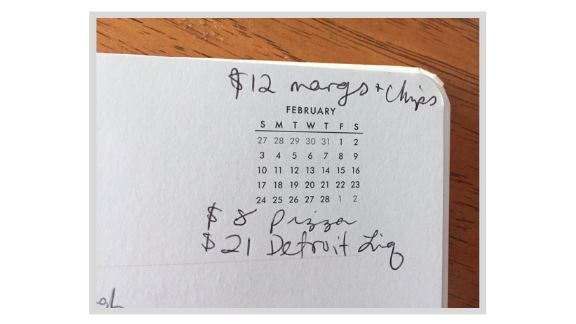 $12 margs + Chips
FEBRUARY
S M T W T F S
27 28 29 30 31 1 2
3 4 5 6 7 8 9
10 11 12 13 14 15 16
17 18 19 20 21 22 23
24 25 26 27 28 1 2
$8 Pizza
$21 Detroit Liq